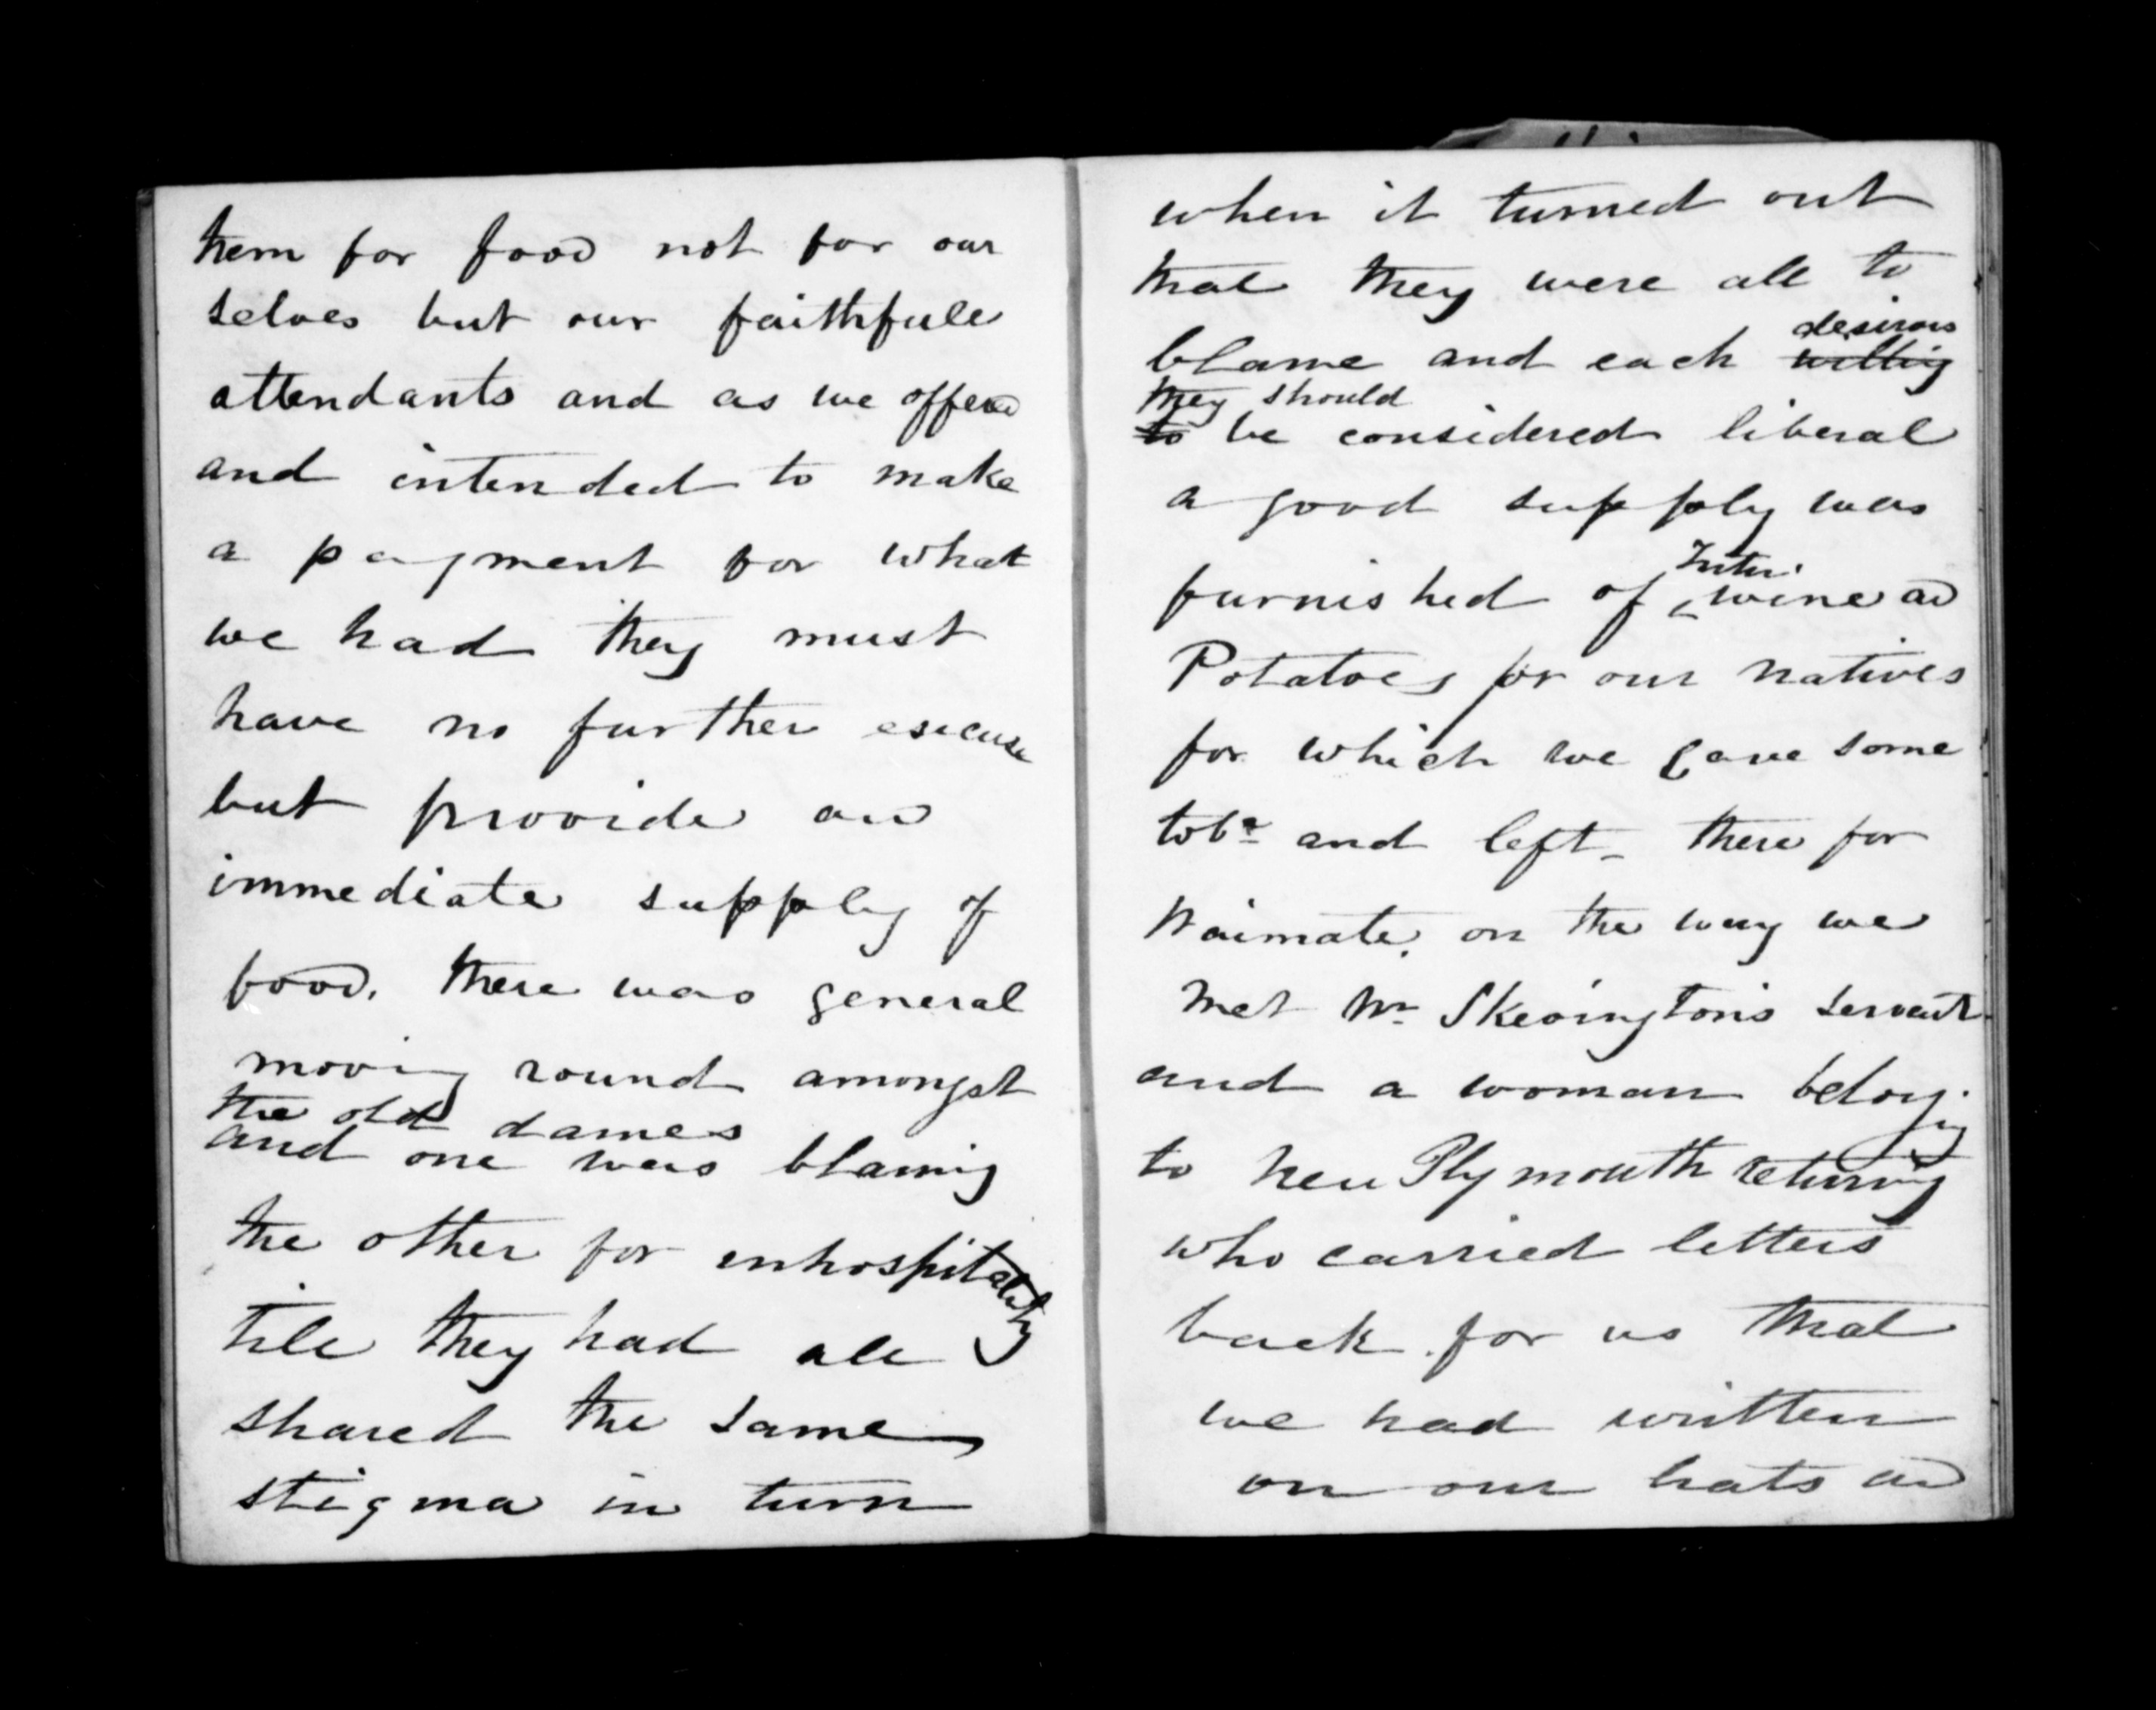 them for food not for our
selves but our faithfull
attendants and as we offered
and intended to make
a payment for what
we had they must
have no further excuse
but provide an
immediate supply of
food. there was general
moving round amongst
the old dames
and one was blaming
the other for inhospitality
till they had all
shared the same
stigma in turn
when it turned out
that they were all to
desirous
blame and each willing
they should
to be considered liberal
a good supply was
Tutu
furnished of wine and
Potatoes for our natives
for which we gave some
tobo and left there for
Waimate. on the way we
met Mr Skevington's servant
and a woman belonging
to New Plymouth returning
who carried letters
back for us that
we had written
on our hats and